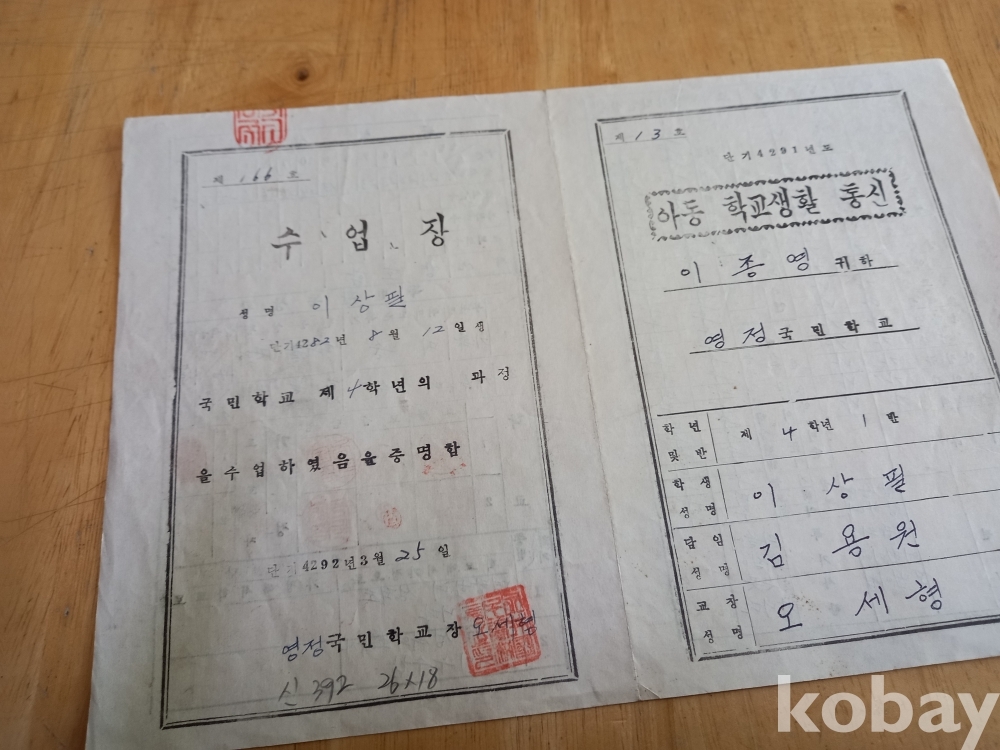 제 166 호
수 업 장
성 명 이 상 필
단기 4282년 8월 12일생
국민학교 제4학년의 과정
을 수업하였음을 증명함
단기 4292년 3월 25일
영정국민학교장 오세형
신392 26×18
제 13 호
단기 4291년도
아동 학교생활 통신
이 종 영 귀하
영정국민학교
학년 및 반 제 4 학년 1 반
학생 성명 이 상 필
담임 성명 김 용 원
교장 성명 오 세 형
kobay